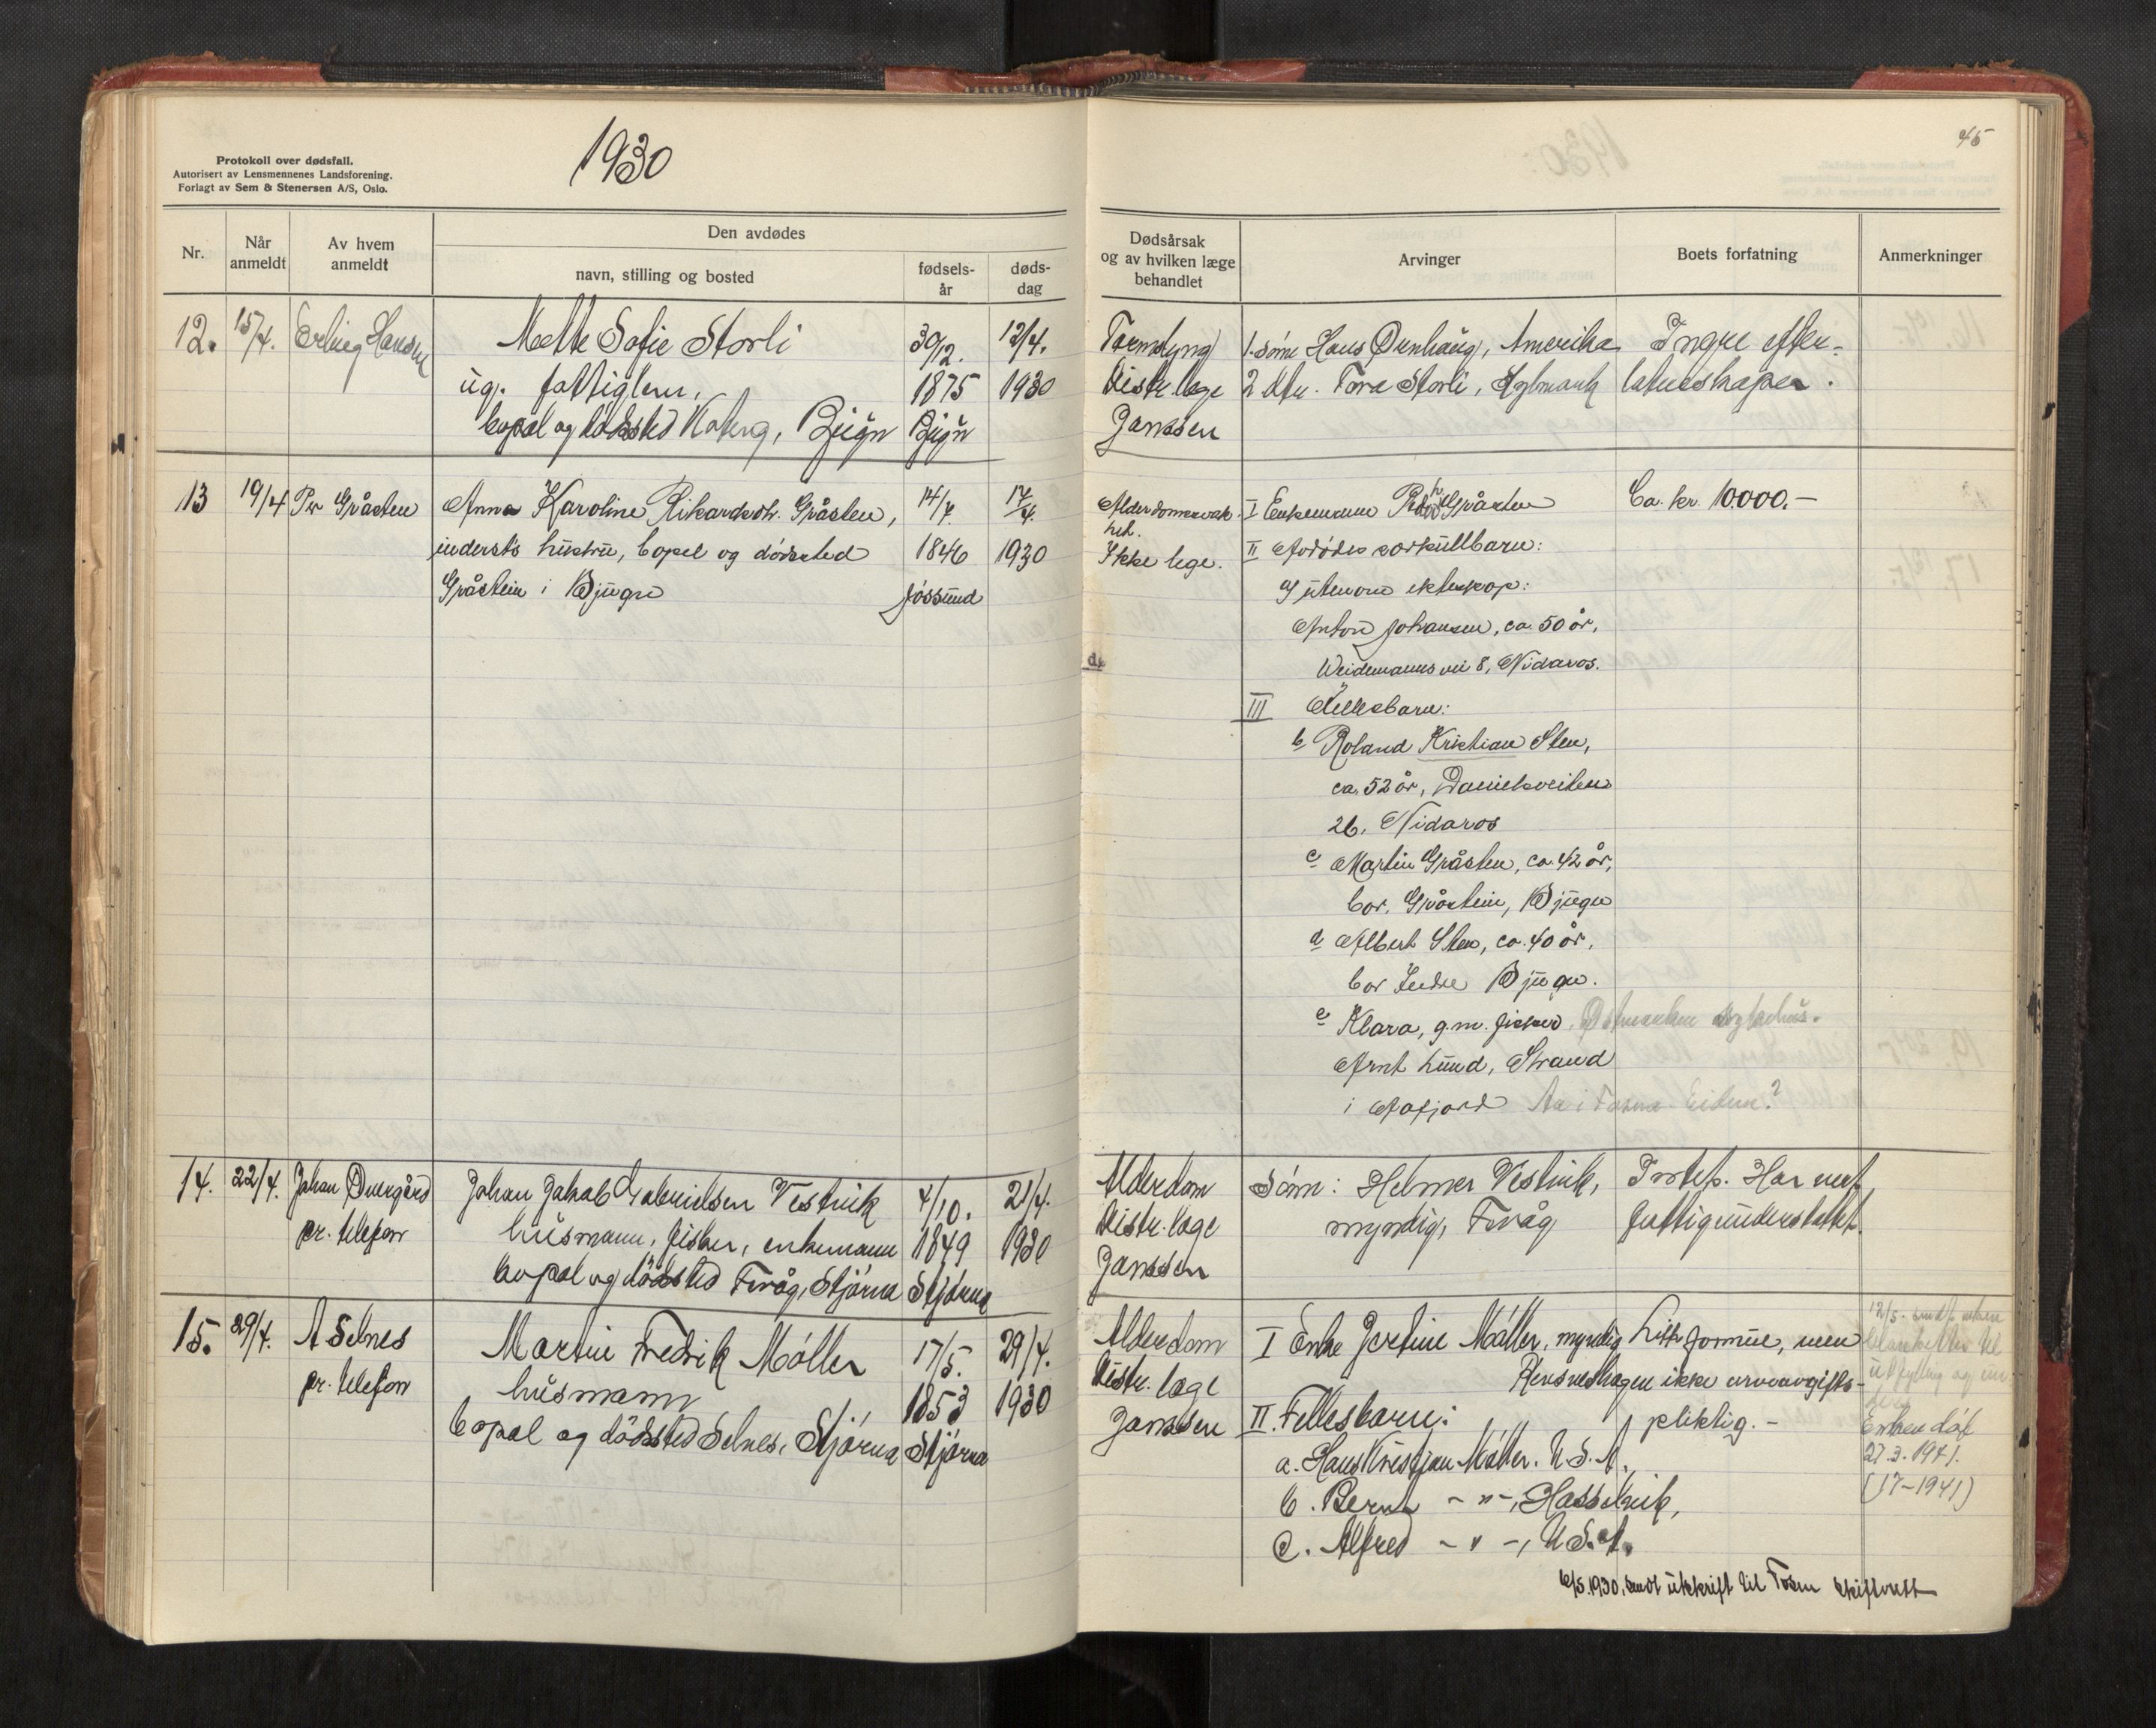 Protokoll over dødsfall.
Autorisert av Lensmennenes Landsforening.
Forlagt av Sem & Stenersen A/S, Oslo.
1930
45
Nr.
Når anmeldt
Av hvem anmeldt
Den avdødes
navn, stilling og bosted
fødsels-år
døds-dag
Dødsårsak og av hvilken læge behandlet
Arvinger
Boets forfatning
Anmerkninger
12. 15/4. Erling Hansen Mette Sofie Storli 30/12. 12/4.
ug. fattiglem, 1875 1930
bopæl og dødssted Koteng, Bjugn Bjugn
Tarmslyng
Distr. læge
Janssen
1. sønn Hans Ørnhaug, Amerika
2 dtr. Tora Storli,
Ingen efter-
latenskaper.
13 19/4 Per Gråsten Anna Karoline Rikardsdtr. Gråsten, 14/7. 17/4.
inderst's hustru, bopel og dødssted 1846 1930
Gråstein i Bjugn Jøssund
Alderdomssvak-
het.
Ikke lege.
I Enkemann Peder Gråsten
II Avdødes særkullbarn:
a) utenom ekteskap:
Anton Johansen, ca. 50 år,
Weidemanns vei 8, Nidaros.
III Fellesbarn:
b Roland Kristian Sten,
ca. 52 år, Danielsveiten
26, Nidaros
c Martin Gråsten, ca. 42 år,
bor. Gråstein, Bjugn
d Albert Sten, ca. 40 år,
bor Indre Bjugn.
e Klara, g.m. fisker Østmarken asylhus.
Arnt Lund, Strand
i Aafjord
Ca. kr. 10000.-
14. 22/4. Johan Øvergård Johan Jakob Gabrielsen Vestvik 4/10. 21/4.
pr. telefon husmann, fisker, enkemann 1849 1930
bopæl og dødssted Fevåg, Stjørna Stjørna
Alderdom
Distr. læge
Janssen
Sønn: Helmer Vestvik,
myndig, Fevåg
Har vært
fattigunderstøttet.
15. 29/4. A Selnes Martin Fredrik Møller 17/5. 29/4.
pr. telefon husmann 1853 1930
bopæl og dødssted Selnes, Stjørna Stjørna
Alderdom
Distr. læge
Janssen
I Enke Jertine Møller, myndig
Rensneshagen
II. Fellesbarn:
a. Hans Kristian Møller. U.S.A.
b. Bernt -"-, Hasselvik,
c. Alfred -"-, U.S.A.
Litt formue, men
ikke arveavgifts-
pliktig.-
12/5. sendt enken
blanketter til
utfylling og
Enken død
27.3.1941.
(17-1941)
6/5.1930, sendt utskrift til Fosen skifterett